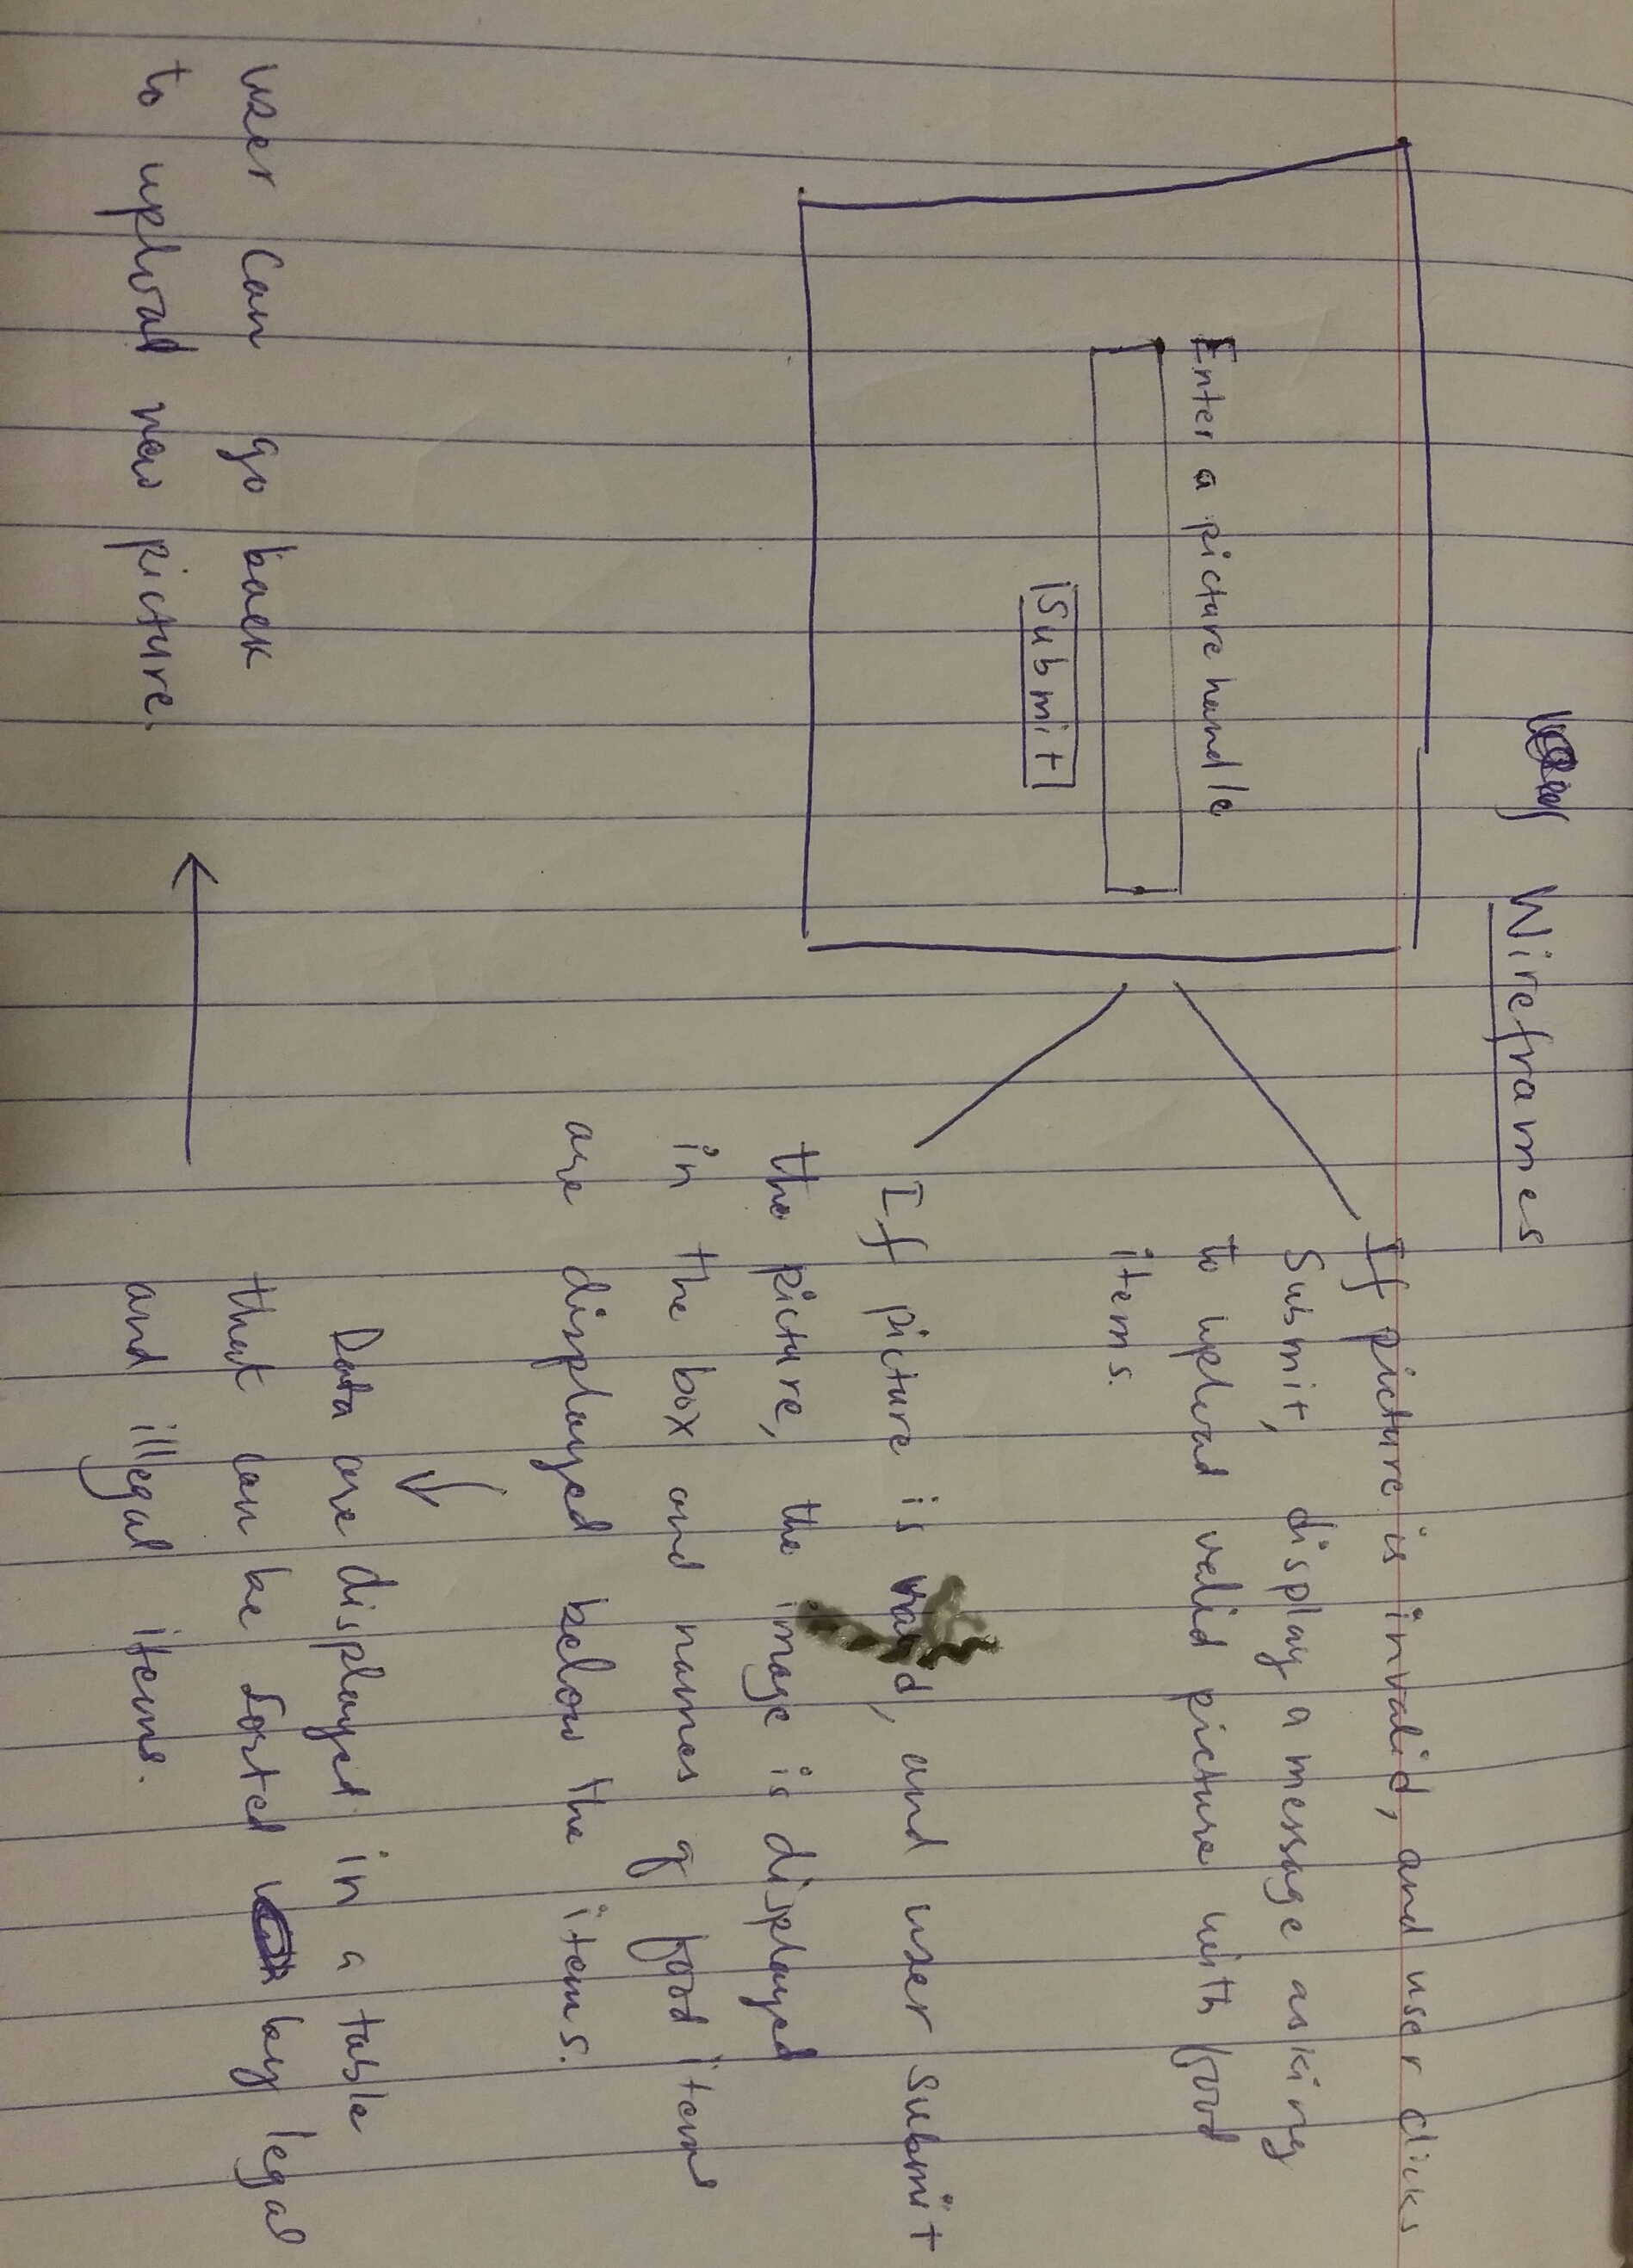 Wireframes
Enter a picture handle
Submit
If picture is invalid, and user clicks
Submit, display a message asking
to upload valid picture with food
items.
If picture is valid, and user submit
the picture, the image is displayed
in the box and names of food items
are displayed below the items.
Data are displayed in a table
that can be sorted by legal
and illegal items.
user can go back
to upload new picture.